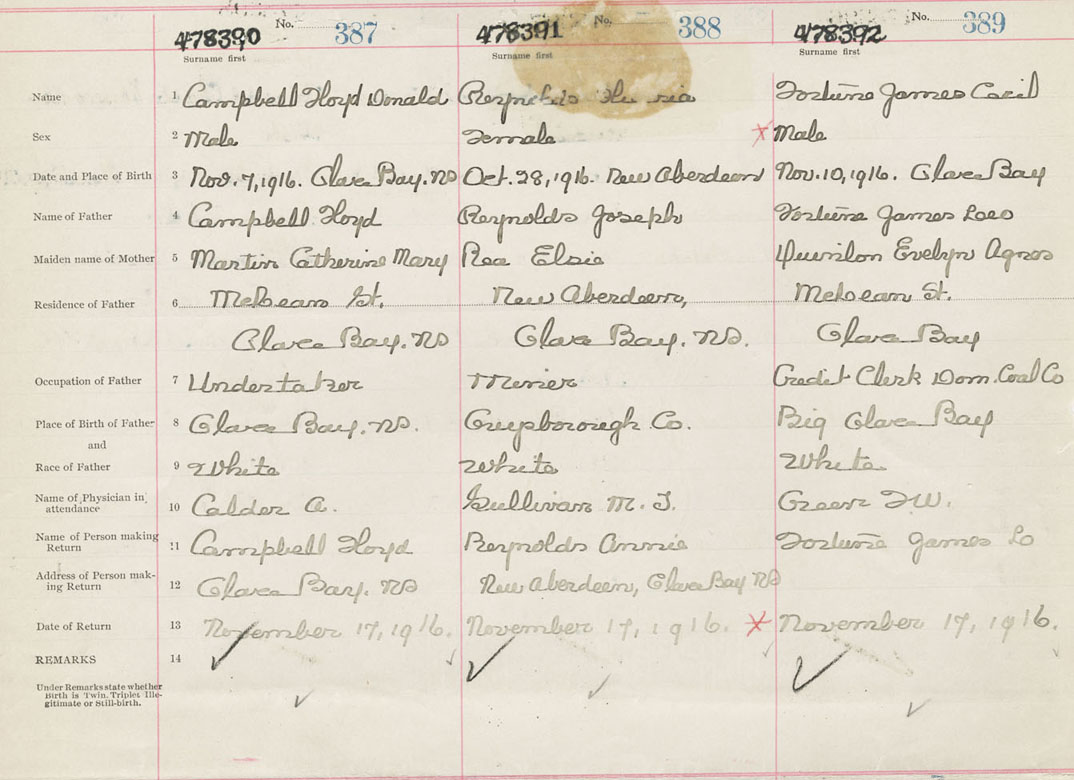 No. 387 No. 388 No. 389
478390 478391 478392
Surname first Surname first Surname first
Name 1 Campbell Floyd Donald Reynolds Fortune James Cecil
Sex 2 Male Female Male
Date and Place of Birth 3 Nov. 7, 1916. Glace Bay. NS Oct. 28, 1916. New Aberdeen Nov. 10, 1916. Glace Bay
Name of Father 4 Campbell Floyd Reynolds Joseph Fortune James Leo
Maiden name of Mother 5 Martin Catherine Mary Rea Elsie Quinlon Evelyn Agnes
Residence of Father 6 McLean St. New Aberdeen, McLean St.
Glace Bay. NS Glace Bay. NS. Glace Bay
Occupation of Father 7 Undertaker Miner Credit Clerk Dom. Coal Co
Place of Birth of Father 8 Glace Bay. NS. Guysborough Co. Big Glace Bay
and
Race of Father 9 White White White
Name of Physician in
attendance 10 Calder A. Sullivan M. T. Green F.W.
Name of Person making
Return 11 Campbell Floyd Reynolds Annie Fortune James Lo
Address of Person mak-
ing Return 12 Glace Bay. NS New Aberdeen, Glace Bay NS
Date of Return 13 November 17, 1916. November 17, 1916. November 17, 1916.
REMARKS 14
Under Remarks state whether
Birth is Twin. Triplet Ille-
gitimate or Still-birth.